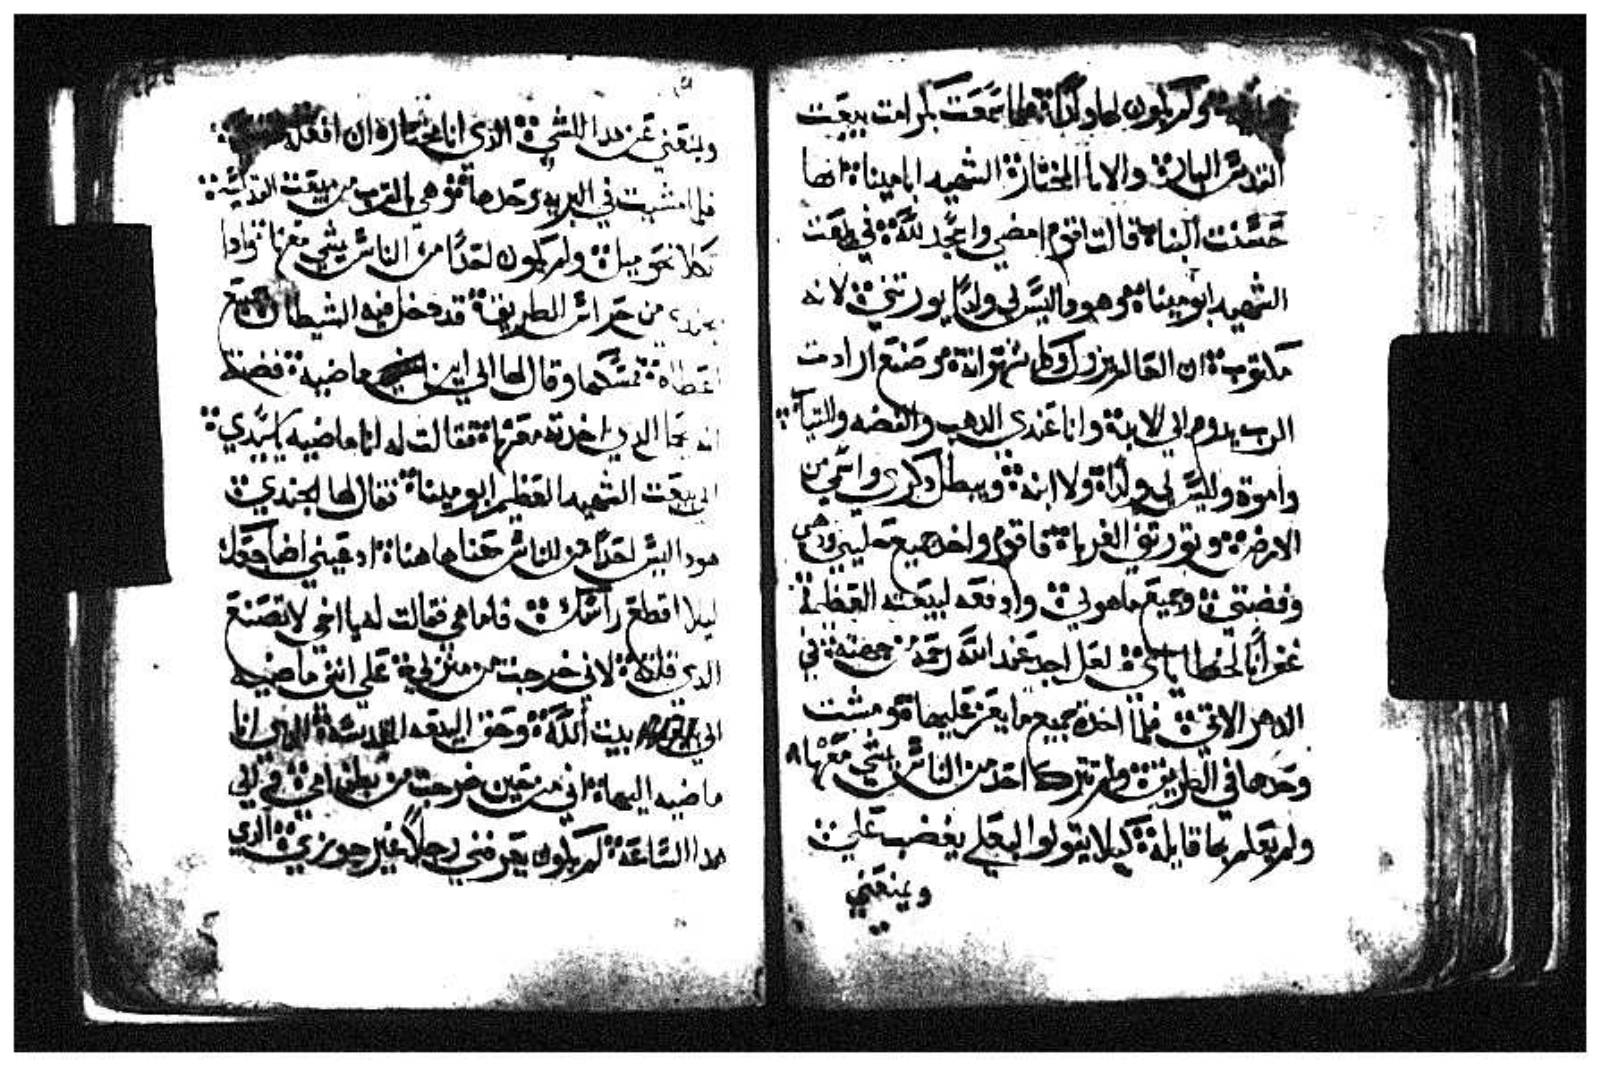 ولم يكون لها ولدا فلما سمعت بكرامت بيعت
القديس البار والابا المختار الشهيد ابا مينا انها
حسدت البناه قالت اقوم امضي واعجد لله في بيعت
الشهيد ابو مينا وهودا ليس لي ولدا يورتني لانه
مكتوب ان العالم يزول وكل شهواته ومن صنع ارادت
الرب يدوم الي الابد وانا عندي الدهب والفضه والتياب
واموت وليس لي ولدا ولا ابنه ويبطل دكري واسمي من
الارض ويورتني الغربا فاقوم واخد جميع حليي ودهبي
وفضتي وجميع ما هو لي وادفعه لبيعته العظيمة
غفرانا لخطاياي لعل اجد عند الله رحمه في
الدهر الاتي فلما اخدة جميع ما يعز عليها ومشت
وحدها في الطريق ولم تترك احد من الناس يمشي معها
ولم يعلم بها قايلة كيلا يقولوا لبعلي يغضب علي
ويمنعني
ويمنعني عن هدا الشي الدي انا مختارة ان افعله
فلما مشيت في البريه وحدها وهي بالقرب من بيعت القديس
تكلا نحو ميل ولم يكون احدا من الناس يمشي معها وادا
بجندي من حراس الطريق قد دخل فيه الشيطان
فمسكها وقال لها الي اين ماضيه فضنة
انه بما الدي اخدته معها فقالت له انا ماضيه يا سيدي
الي بيعت الشهيد العظيم ابو مينا فقال لها الجندي
هودا ليس احدا من الناس هنا هاهنا ادعيني اضاجعك
ليلا اقطع راسك فاما هي فقالت له يا اخي لا تصنع
الدي قلته لاني خرجت من منزلي علي انني ماضيه
الي بيت الله وحق البيعه المقدسة الدي انا
ماضيه اليها اني من حين خرجت من بطن امي في الي
هدا الساعة لم يكون يعرفني رجلا غير جوزي الدي